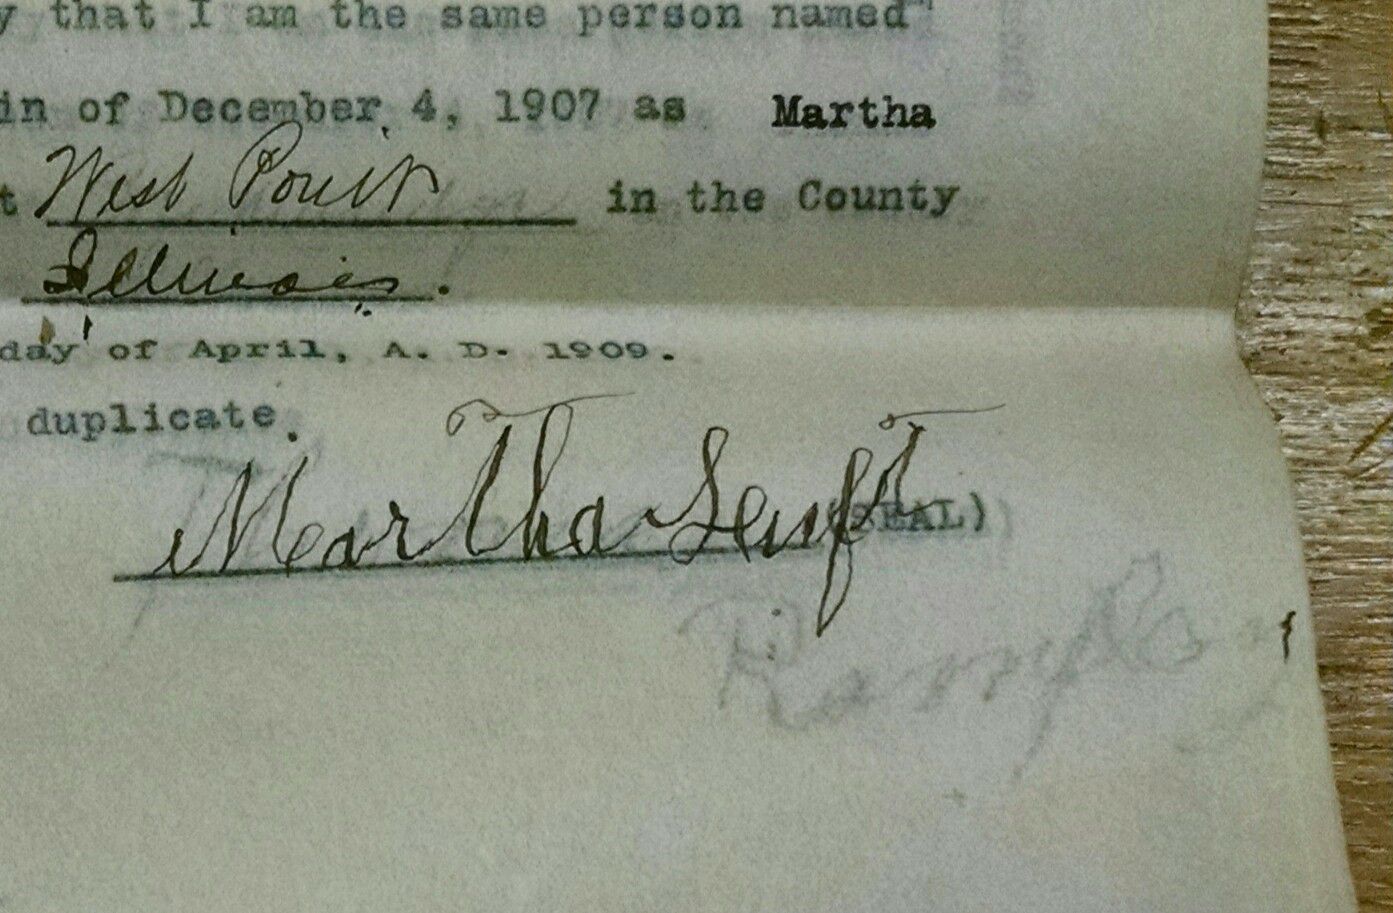 y that I am the same person named"
in of December 4, 1907 as Martha
t West Point in the County
Illinois.
day of April, A. D. 1909.
duplicate.
Martha Senft (SEAL)